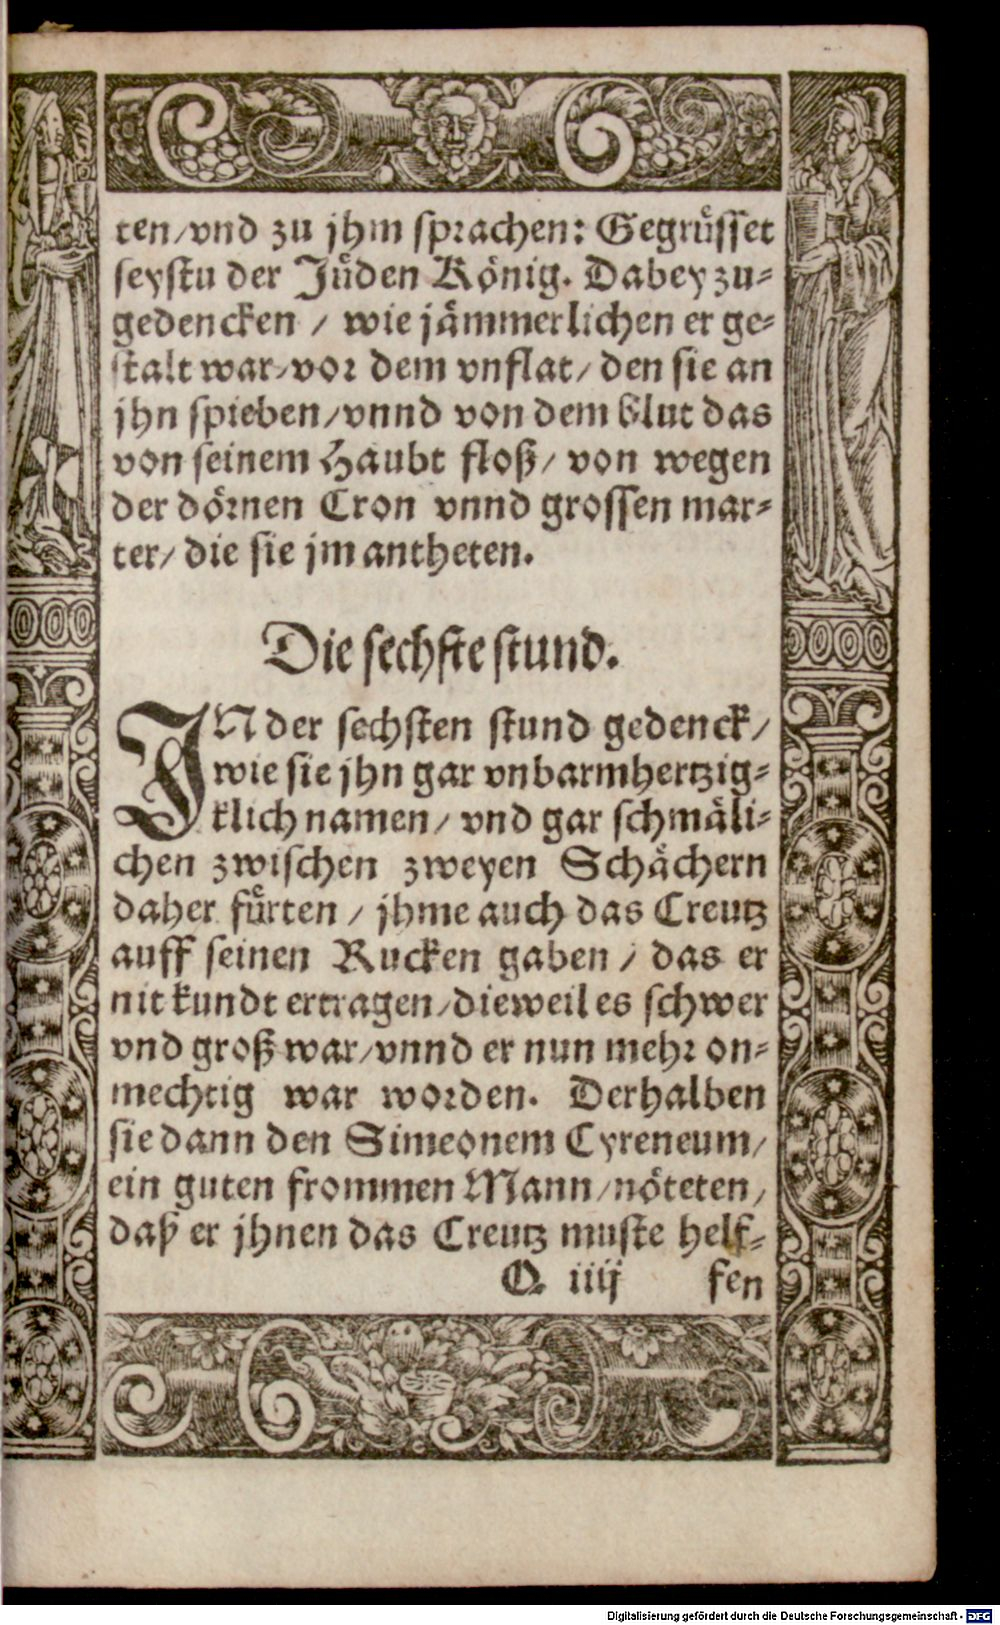 ten/vnd zu jhm sprachen: Gegrüsset
seystu der Jüden König. Dabey zu-
gedencken / wie jämmerlichen er ge-
stalt war/vor dem vnflat/ den sie an
jhn spieben/vnnd von dem blut das
von seinem Haubt floß/ von wegen
der dörnen Cron vnnd grossen mar-
ter/ die sie jm antheten.
Die sechste stund.
IN der sechsten stund gedenck/
wie sie jhn gar vnbarmhertzig-
klich namen/ vnd gar schmäli-
chen zwischen zweyen Schächern
daher fürten / jhme auch das Creutz
auff seinen Rucken gaben / das er
nit kundt ertragen/dieweil es schwer
vnd groß war/vnnd er nun mehr on-
mechtig war worden. Derhalben
sie dann den Simeonem Cyreneum/
ein guten frommen Mann/nöteten/
daß er jhnen das Creutz muste helf-
Q iiij fen
Digitalisierung gefördert durch die Deutsche Forschungsgemeinschaft - DFG